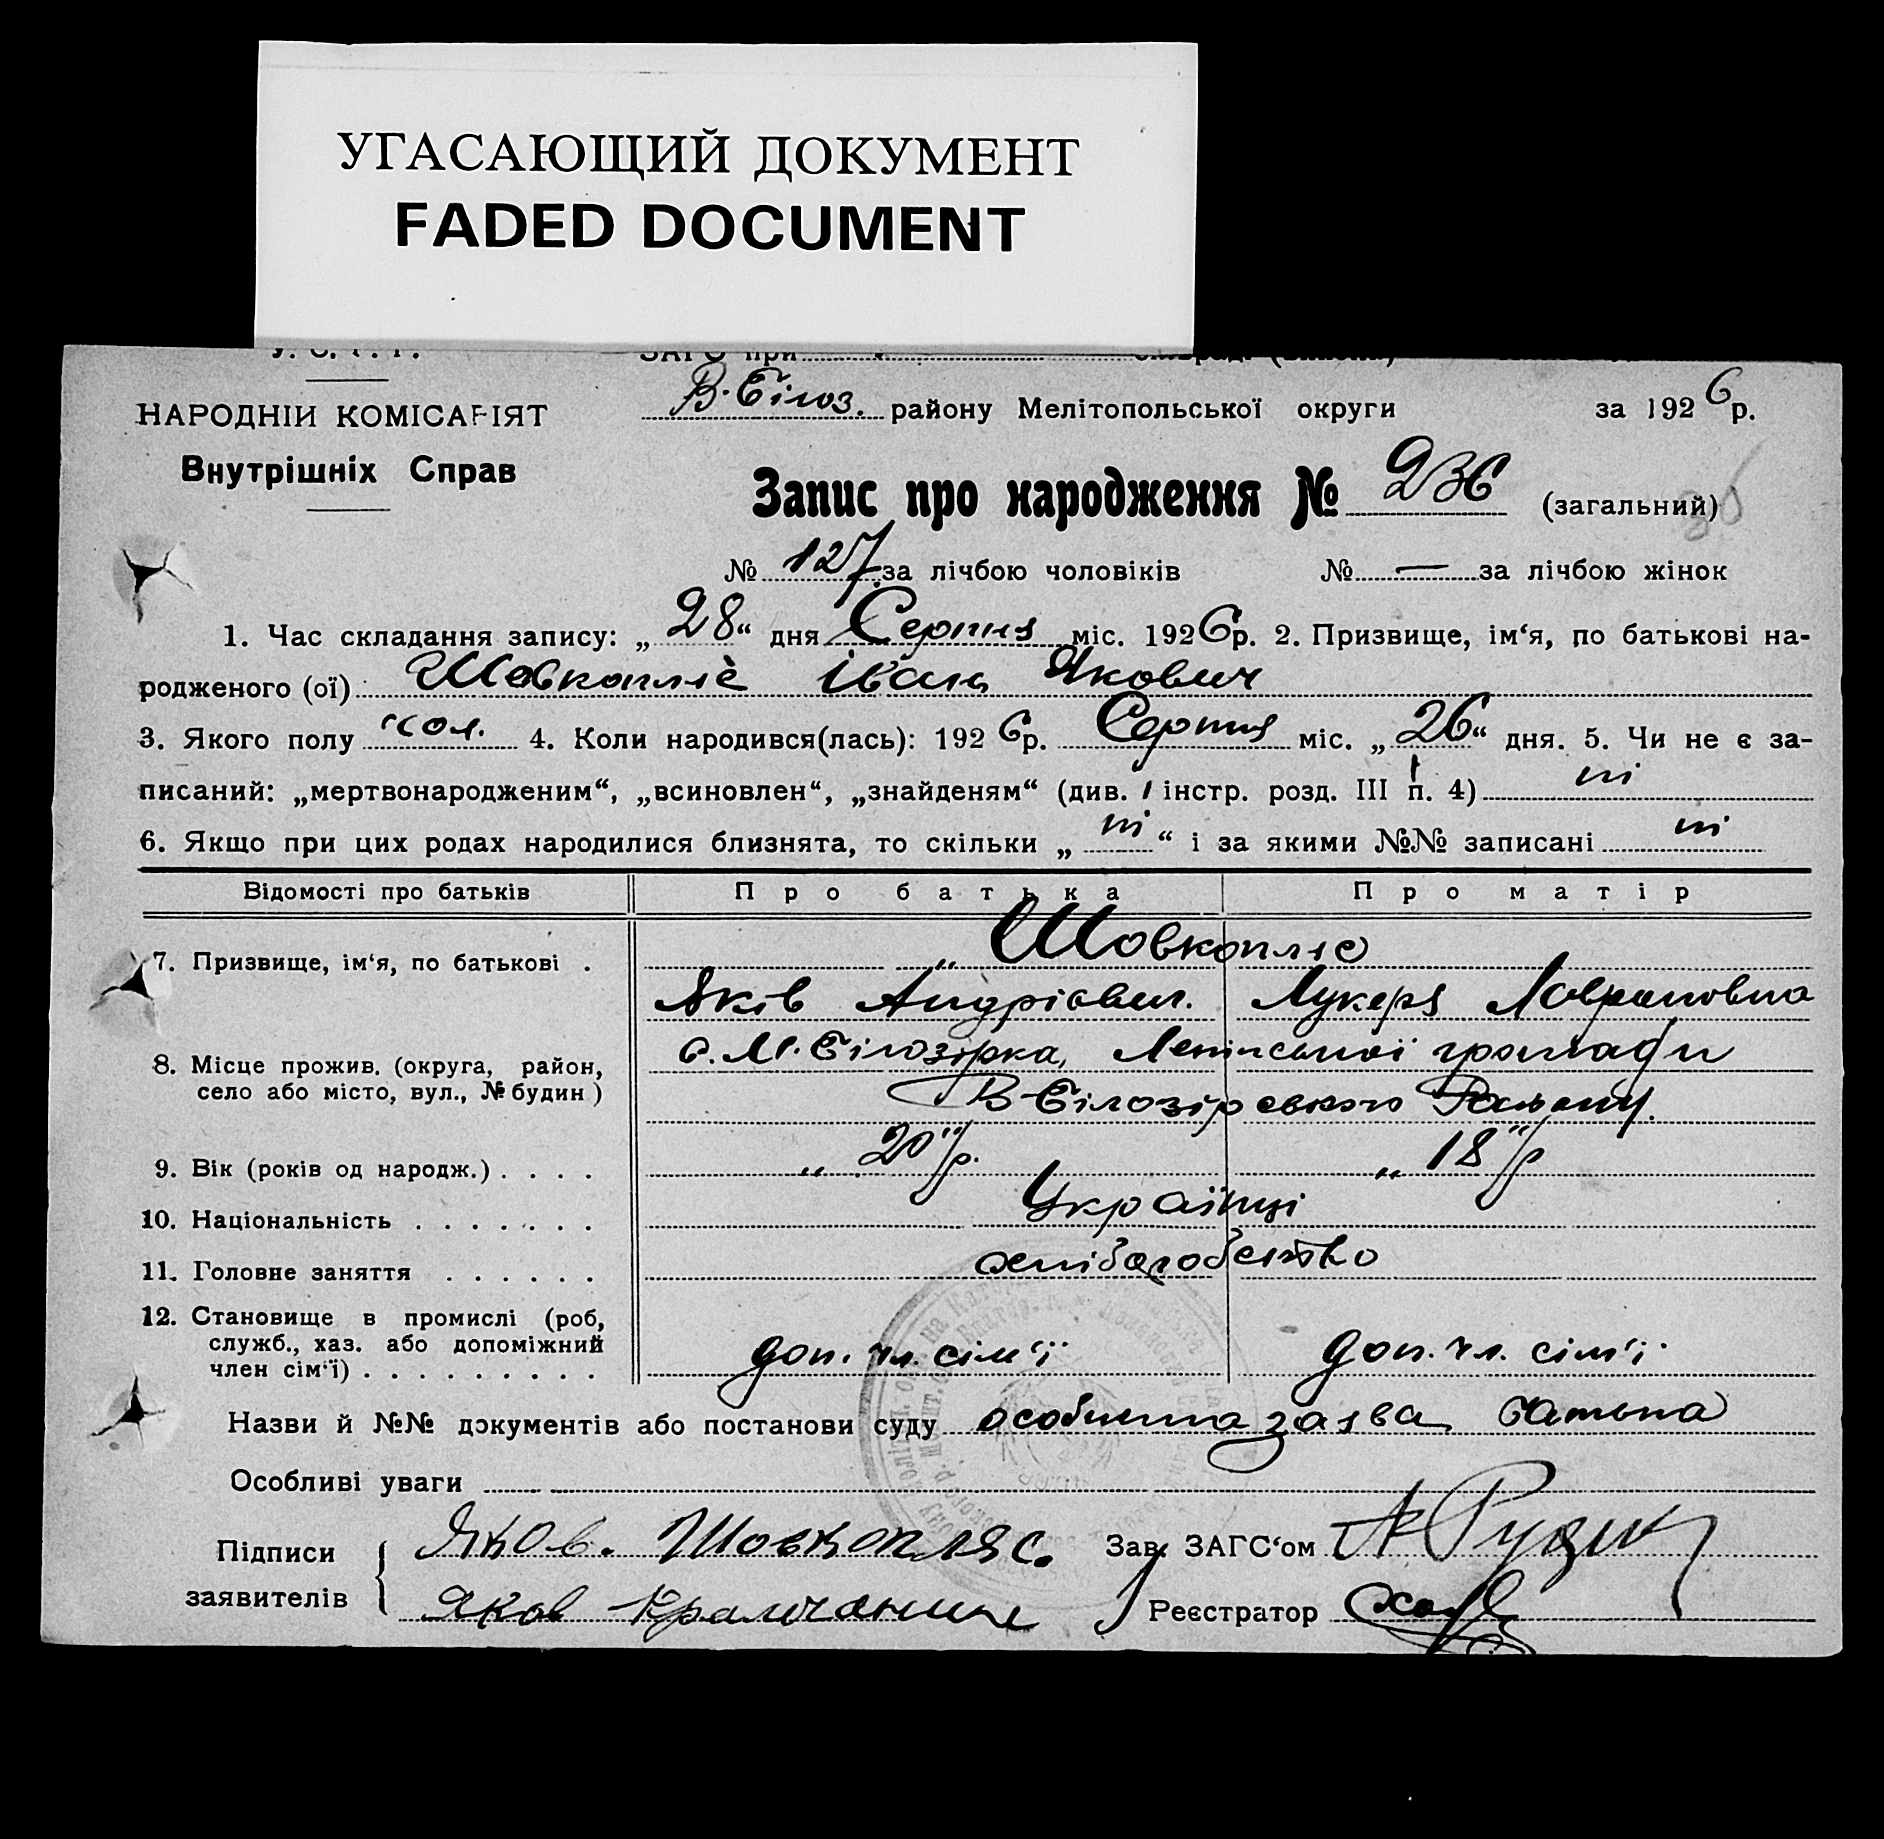 УГАСАЮЩИЙ ДОКУМЕНТ
FADED DOCUMENT
ЗАГС при
НАРОДНІЙ КОМІСАРІЯТ
Внутрішніх Справ
В. Білоз. району Мелітопольської округи за 1926 р.
Запис про народження № 236 (загальний)
№ 127 за лічбою чоловіків № — за лічбою жінок
1. Час складання запису: „28“ дня Серпня міс. 1926 р. 2. Призвище, ім‘я, по батькові на-
родженого (ої) Шовкопляс Іван Якович
3. Якого полу чол. 4. Коли народився(лась): 1926 р. Серпня міс. „26“ дня. 5. Чи не є за-
писаний: „мертвонародженим“, „всиновлен“, „знайденям“ (див. інстр. розд. III п. 4) ні
6. Якщо при цих родах народилися близнята, то скільки „ні“ і за якими №№ записані ні
Відомості про батьків Про батька Про матір
7. Призвище, ім‘я, по батькові . Шовкопляс
Яків Андрієвич. Лукеря
8. Місце прожив. (округа, район, село або місто, вул., № будин) с. М. Білозірка, Ленінської громади
В-Білозірського Району.
9. Вік (років од народж.) . . . . 20 р. 18 р
10. Національність . . . . . . . Українці
11. Головне заняття . . . . . . хліборобство
12. Становище в промислі (роб, служб., хаз. або допоміжний член сім‘ї) . . . . . . . . . доп. чл. сім‘ї доп. чл. сім‘ї
Назви й №№ документів або постанови суду особиста заява батька
Особливі уваги
Підписи заявителів
Яков. Шовкопляс. Зав. ЗАГС‘ом
Яков Реєстратор